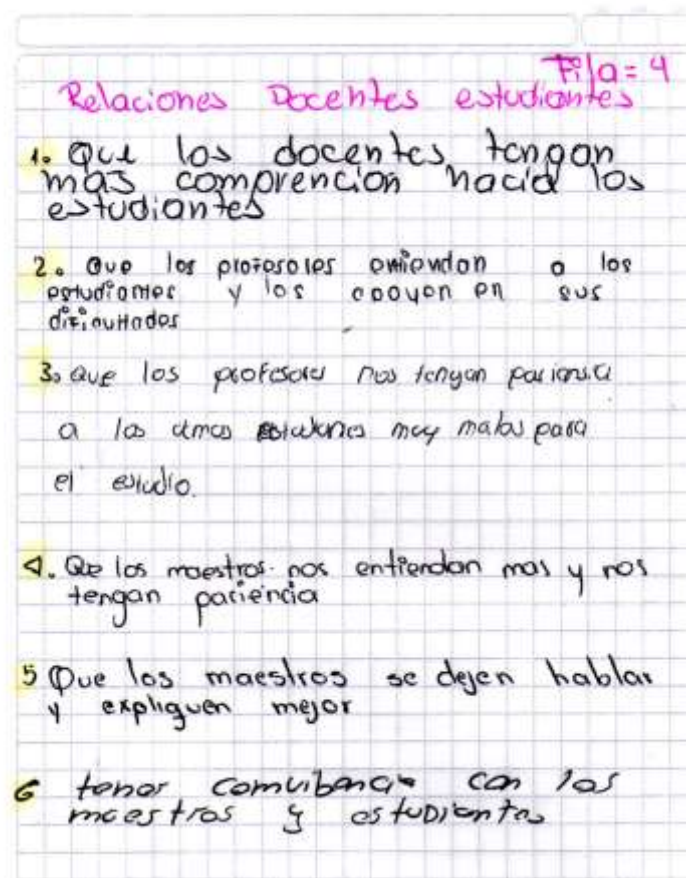 Fila=4
Relaciones Docentes estudiantes
1. Que los docentes tengan
mas comprencion hacia los
estudiantes
2. Que los profesores entiendan a los
estudiantes y los apoyen en sus
dificultades
3. Que los profesores nos tengan paciensia
a los
muy malos para
el estudio.
4. Qe los maestros nos entiendan mas y nos
tengan paciencia
5 Que los maestros se dejen hablar
y expliquen mejor
6 tener comvibencia con los
maestros y estudiantes